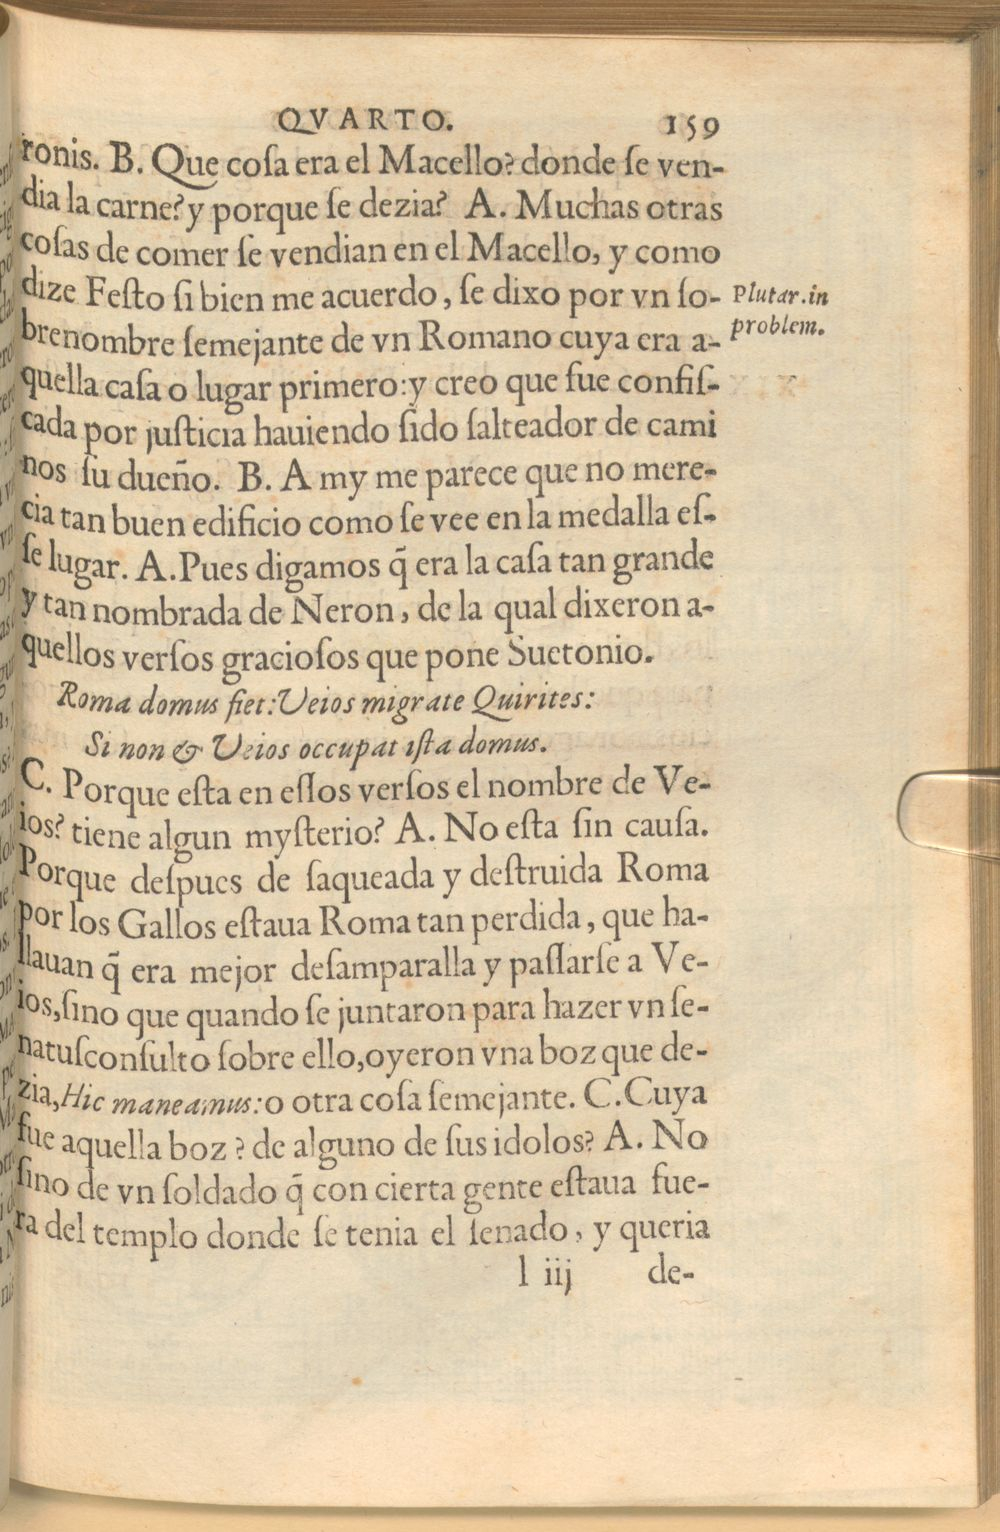 QVARTO. 159
ronis. B. Que coſa era el Macello? donde ſe ven-
dia la carne? y porque ſe dezia? A. Muchas otras
coſas de comer ſe vendian en el Macello, y como
dize Feſto ſi bien me acuerdo, ſe dixo por vn ſo-
Plutar. in
problem.
brenombre ſemejante de vn Romano cuya era a-
quella caſa o lugar primero: y creo que fue confiſ-
cada por juſticia hauiendo ſido ſalteador de cami
nos ſu dueño. B. A my me parece que no mere-
cia tan buen edificio como ſe vee en la medalla eſ-
ſe lugar. A. Pues digamos q̃ era la caſa tan grande
y tan nombrada de Neron, de la qual dixeron a-
quellos verſos gracioſos que pone Suetonio.
Roma domus fiet: Veios migrate Quirites:
Si non & Veios occupat iſta domus.
C. Porque eſta en eſſos verſos el nombre de Ve-
ios? tiene algun myſterio? A. No eſta ſin cauſa.
Porque deſpues de ſaqueada y deſtruida Roma
por los Gallos eſtaua Roma tan perdida, que ha-
llauan q̃ era mejor deſamparalla y paſſarſe a Ve-
ios, ſino que quando ſe juntaron para hazer vn ſe-
natuſconſulto ſobre ello, oyeron vna boz que de-
zia, Hic maneamus: o otra coſa ſemejante. C. Cuya
fue aquella boz? de alguno de ſus idolos? A. No
ſino de vn ſoldado q̃ con cierta gente eſtaua fue-
ra del templo donde ſe tenia el ſenado, y queria
l iij de-